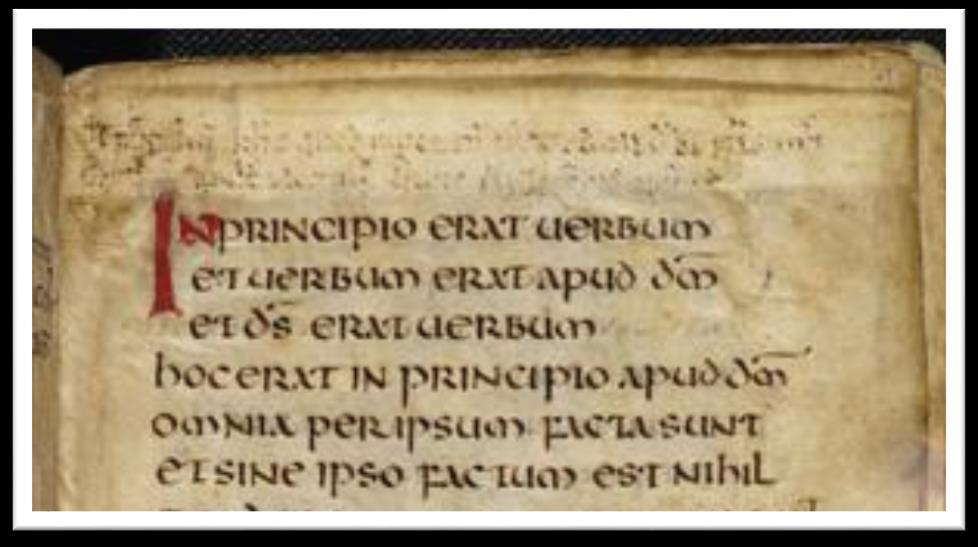 IN PRINCIPIO ERAT UERBUM
ET UERBUM ERAT APUD dm̅
ET ds̅ ERAT UERBUM
hOC ERAT IN PRINCIPIO APUD dm̅
OMNIA PER IPSUM FACTA SUNT
ET SINE IPSO FACTUM EST NIhIL